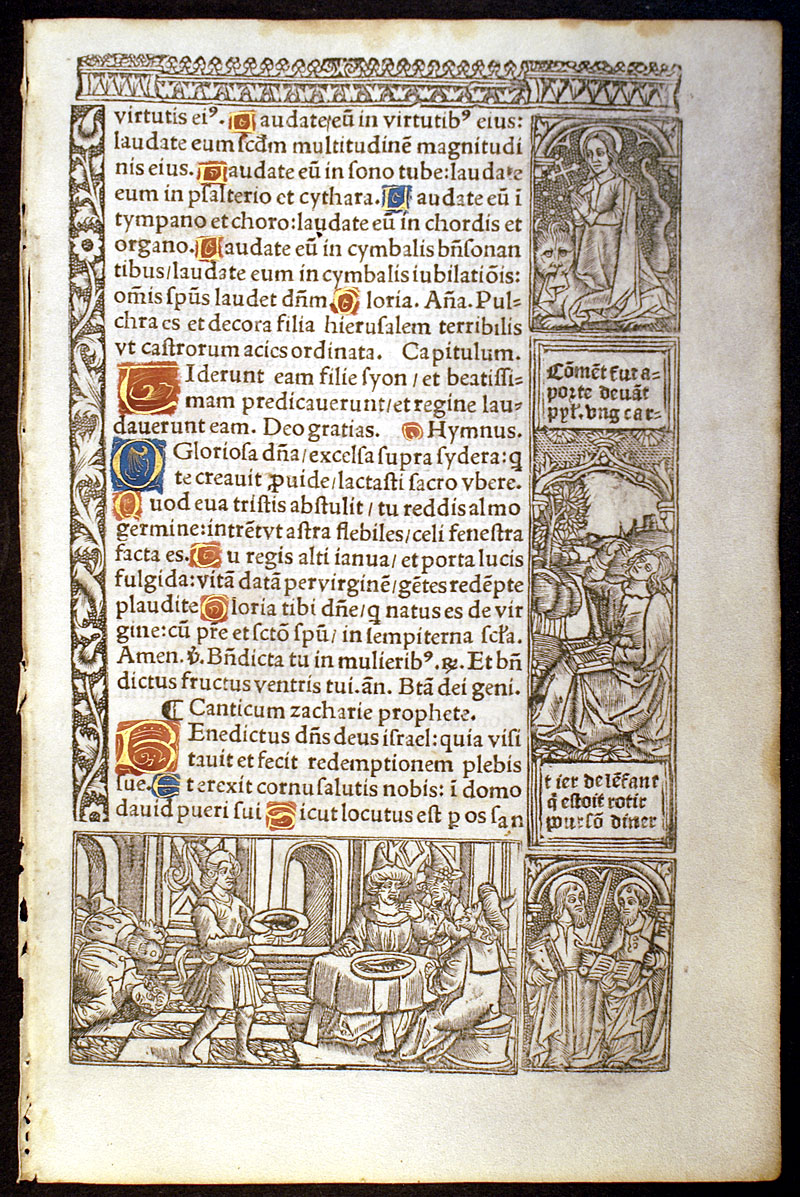 virtutis eiꝰ. Laudate eū in virtutibꝰ eius:
laudate eum scd̄m multitudinē magnitudi
nis eius. Laudate eū in sono tube: laudate
eum in psalterio et cythara. Laudate eū ī
tympano et choro: laudate eū in chordis et
organo. Laudate eū in cymbalis bn̄sonan
tibus / laudate eum in cymbalis iubilatiōis:
om̄is sp̄us laudet dn̄m. Gloria. Aña. Pul⸗
chra es et decora filia hierusalem terribilis
vt castrorum acies ordinata. Capitulum.
VIderunt eam filie syon / et beatissi⸗
mam predicauerunt / et regine lau⸗
dauerunt eam. Deo gratias. Hymnus.
O Gloriosa dn̄a / excelsa supra sydera: q
te creauit ꝓuide / lactasti sacro vbere.
Quod eua tristis abstulit / tu reddis almo
germine: intrēt vt astra flebiles / celi fenestra
facta es. Tu regis alti ianua / et porta lucis
fulgida: vitā datā per virginē / gētes redēpte
plaudite Gloria tibi dn̄e / q natus es de vir
gine: cū pr̄e et sctō sp̄u / in sempiterna scl̄a.
Amen. ℣. Bn̄dicta tu in mulieribꝰ. ℟. Et bn̄
dictus fructus ventris tui. an̄. Btā dei geni.
¶ Canticum zacharie prophete.
BEnedictus dn̄s deus israel: quia visi
tauit et fecit redemptionem plebis
sue. Et erexit cornu salutis nobis: ī domo
dauid pueri sui Sicut locutus est ꝑ os san
Cōmēt fut a⸗
porte deuāt
pyl̄. vng car⸗
tier de lēfant
q̄ estoit rotir
pour sō diner